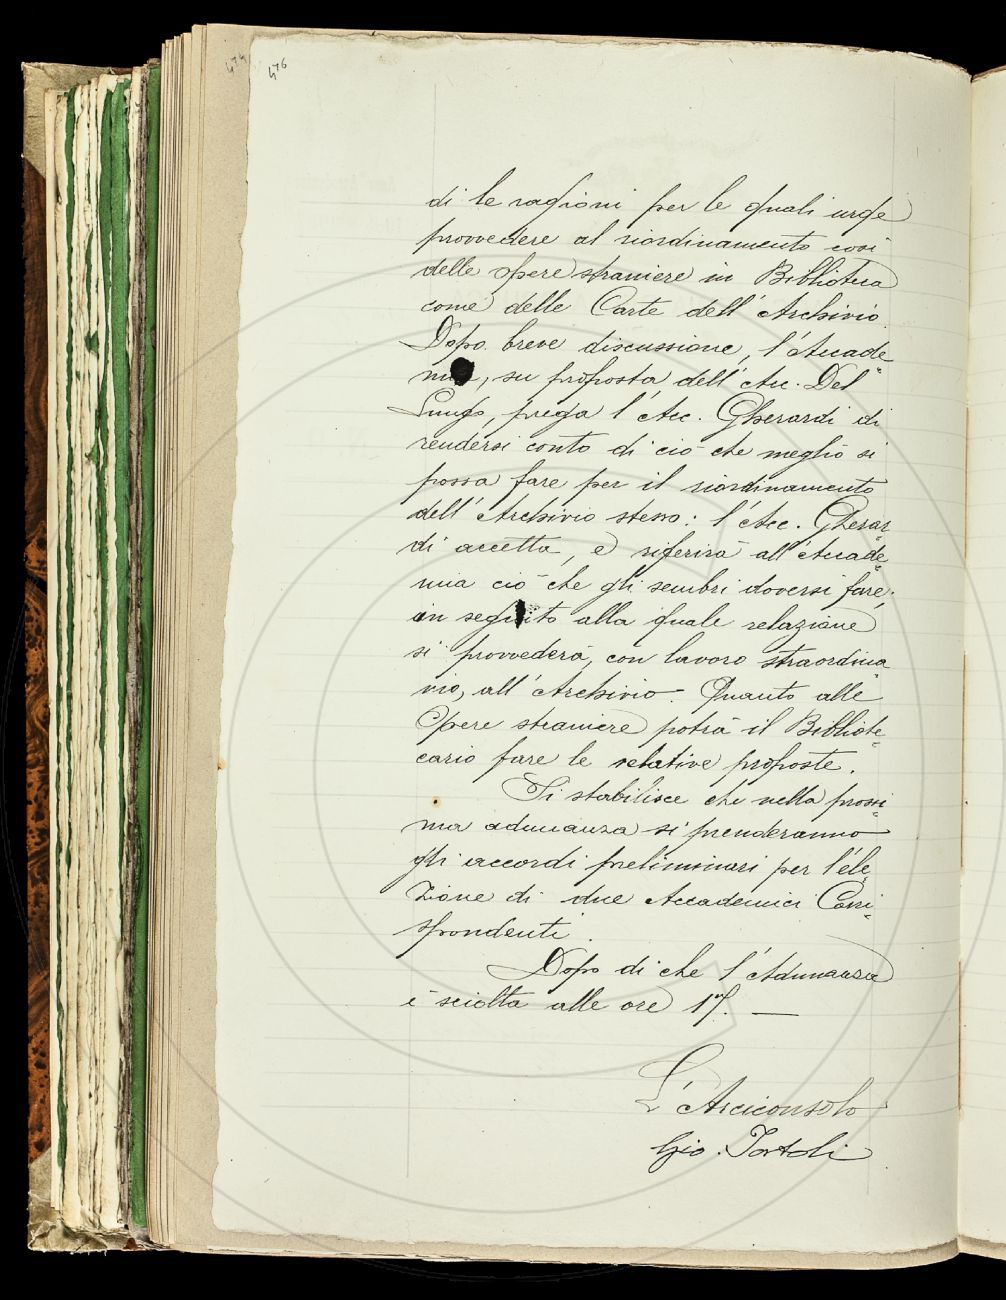 474 476
di le ragioni per le quali urge
provvedere al riordinamento così
delle opere straniere in Biblioteca
come delle Carte dell'Archivio.
Dopo breve discussione, l'Accade-
mia, su proposta dell'Acc. Del
Lungo, prega l'Acc. Gherardi di
rendersi conto di ciò che meglio si
possa fare per il riordinamento
dell'Archivio stesso: l'Acc. Gherar-
di accetta, e riferirà all'Accade-
mia ciò che gli sembri doversi fare;
in seguito alla quale relazione
si provvederà, con lavoro straordina-
rio, all'Archivio. Quanto alle
Opere straniere potrà il Bibliote-
cario fare le relative proposte.
Si stabilisce che nella prossi-
ma adunanza si prenderanno
gli accordi preliminari per l'ele-
zione di due Accademici Corri-
spondenti.
Dopo di che l'Adunanza
è sciolta alle ore 17. —
L'Arciconsolo
Gio. Tortoli